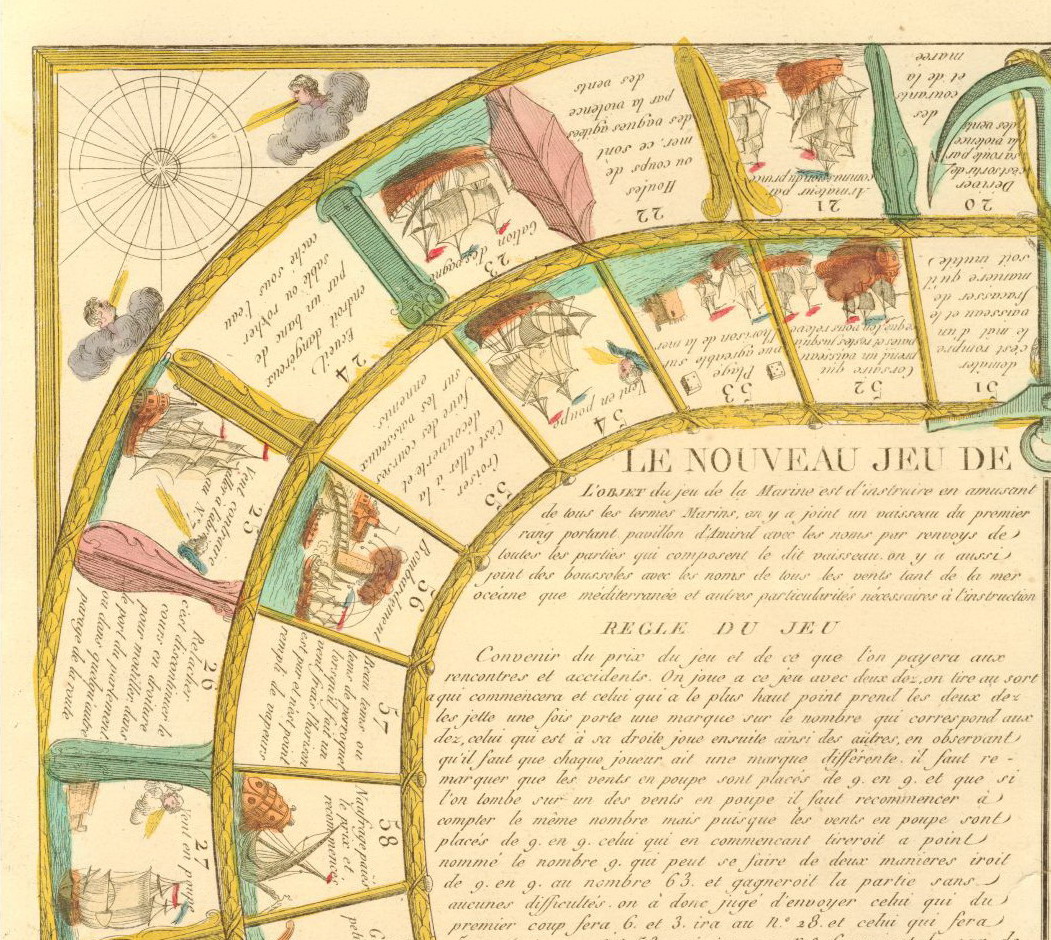 20
Deriver
c'est sortir de
sa route par
la violence
des vents
des
courants
et de la
marée
21
Armateur par
commission du prince
22
Houles
ou coups de
mer ce sont
des vagues agitées
par la violence
des vents
23
Galion d'espagne
24
Ecueil
endroit dangereux
par un banc de
sable ou rocher
caché sous l'eau
25
Vent contraire
aller a l'adresse
au N.º 7
26
Relacher
c'est discontinuer le
cours en droiture
pour mouiller dans
le port du partement
ou dans quelqu'autre
parage de la route
27
Vent en poupe
51
demater
c'est rompre
le mât d'un
vaisseau et le
fracasser de
maniere qu'il
soit inutile
52
Corsaire qui
prend un vaisseau
53
Plage
une agreable sur
l'horison de la mer
54
Vent en poupe
55
Croiser
C'est aller à la
découverte et
faire des courses
sur les vaisseaux
ennemis
56
Bombardement
57
Beau tems ou
lorsqu'il fait un
vent frais l'horison
est pur et n'est point
rempli de vapeurs
58
Naufrage payés
le prix et
recommencés
LE NOUVEAU JEU DE
L'OBJET du jeu de la Marine est d'instruire en amusant
de tous les termes Marins, on y a joint un vaisseau du premier
rang portant pavillon d'Amiral avec les noms par renvoys de
toutes les parties qui composent le dit vaisseau. on y a aussi
joint des boussoles avec les noms de tous les vents tant de la mer
océane que méditerranée et autres particularités nécessaires à l'instruction
REGLE DU JEU
Convenir du prix du jeu et de ce que l'on payera aux
rencontres et accidents. On joue a ce jeu avec deux dez, on tire au sort
a qui commencera et celui qui a le plus haut point prend les deux dez
les jette une fois porte une marque sur le nombre qui correspond aux
dez, celui qui est à sa droite joue ensuite ainsi des autres, en observant
qu'il faut que chaque joueur ait une marque différente. il faut re-
marquer que les vents en poupe sont placés de 9. en 9. et que si
l'on tombe sur un des vents en poupe il faut recommencer à
compter le même nombre mais puisque les vents en poupe sont
placés de 9. en 9. celui qui en commencant tireroit a point
nommé le nombre 9. qui peut se faire de deux manieres iroit
de 9. en 9. au nombre 63. et gagneroit la partie sans
aucunes difficultés. on à donc jugé d'envoyer celui qui du
premier coup fera 6. et 3. ira au n.º 28. et celui qui fera